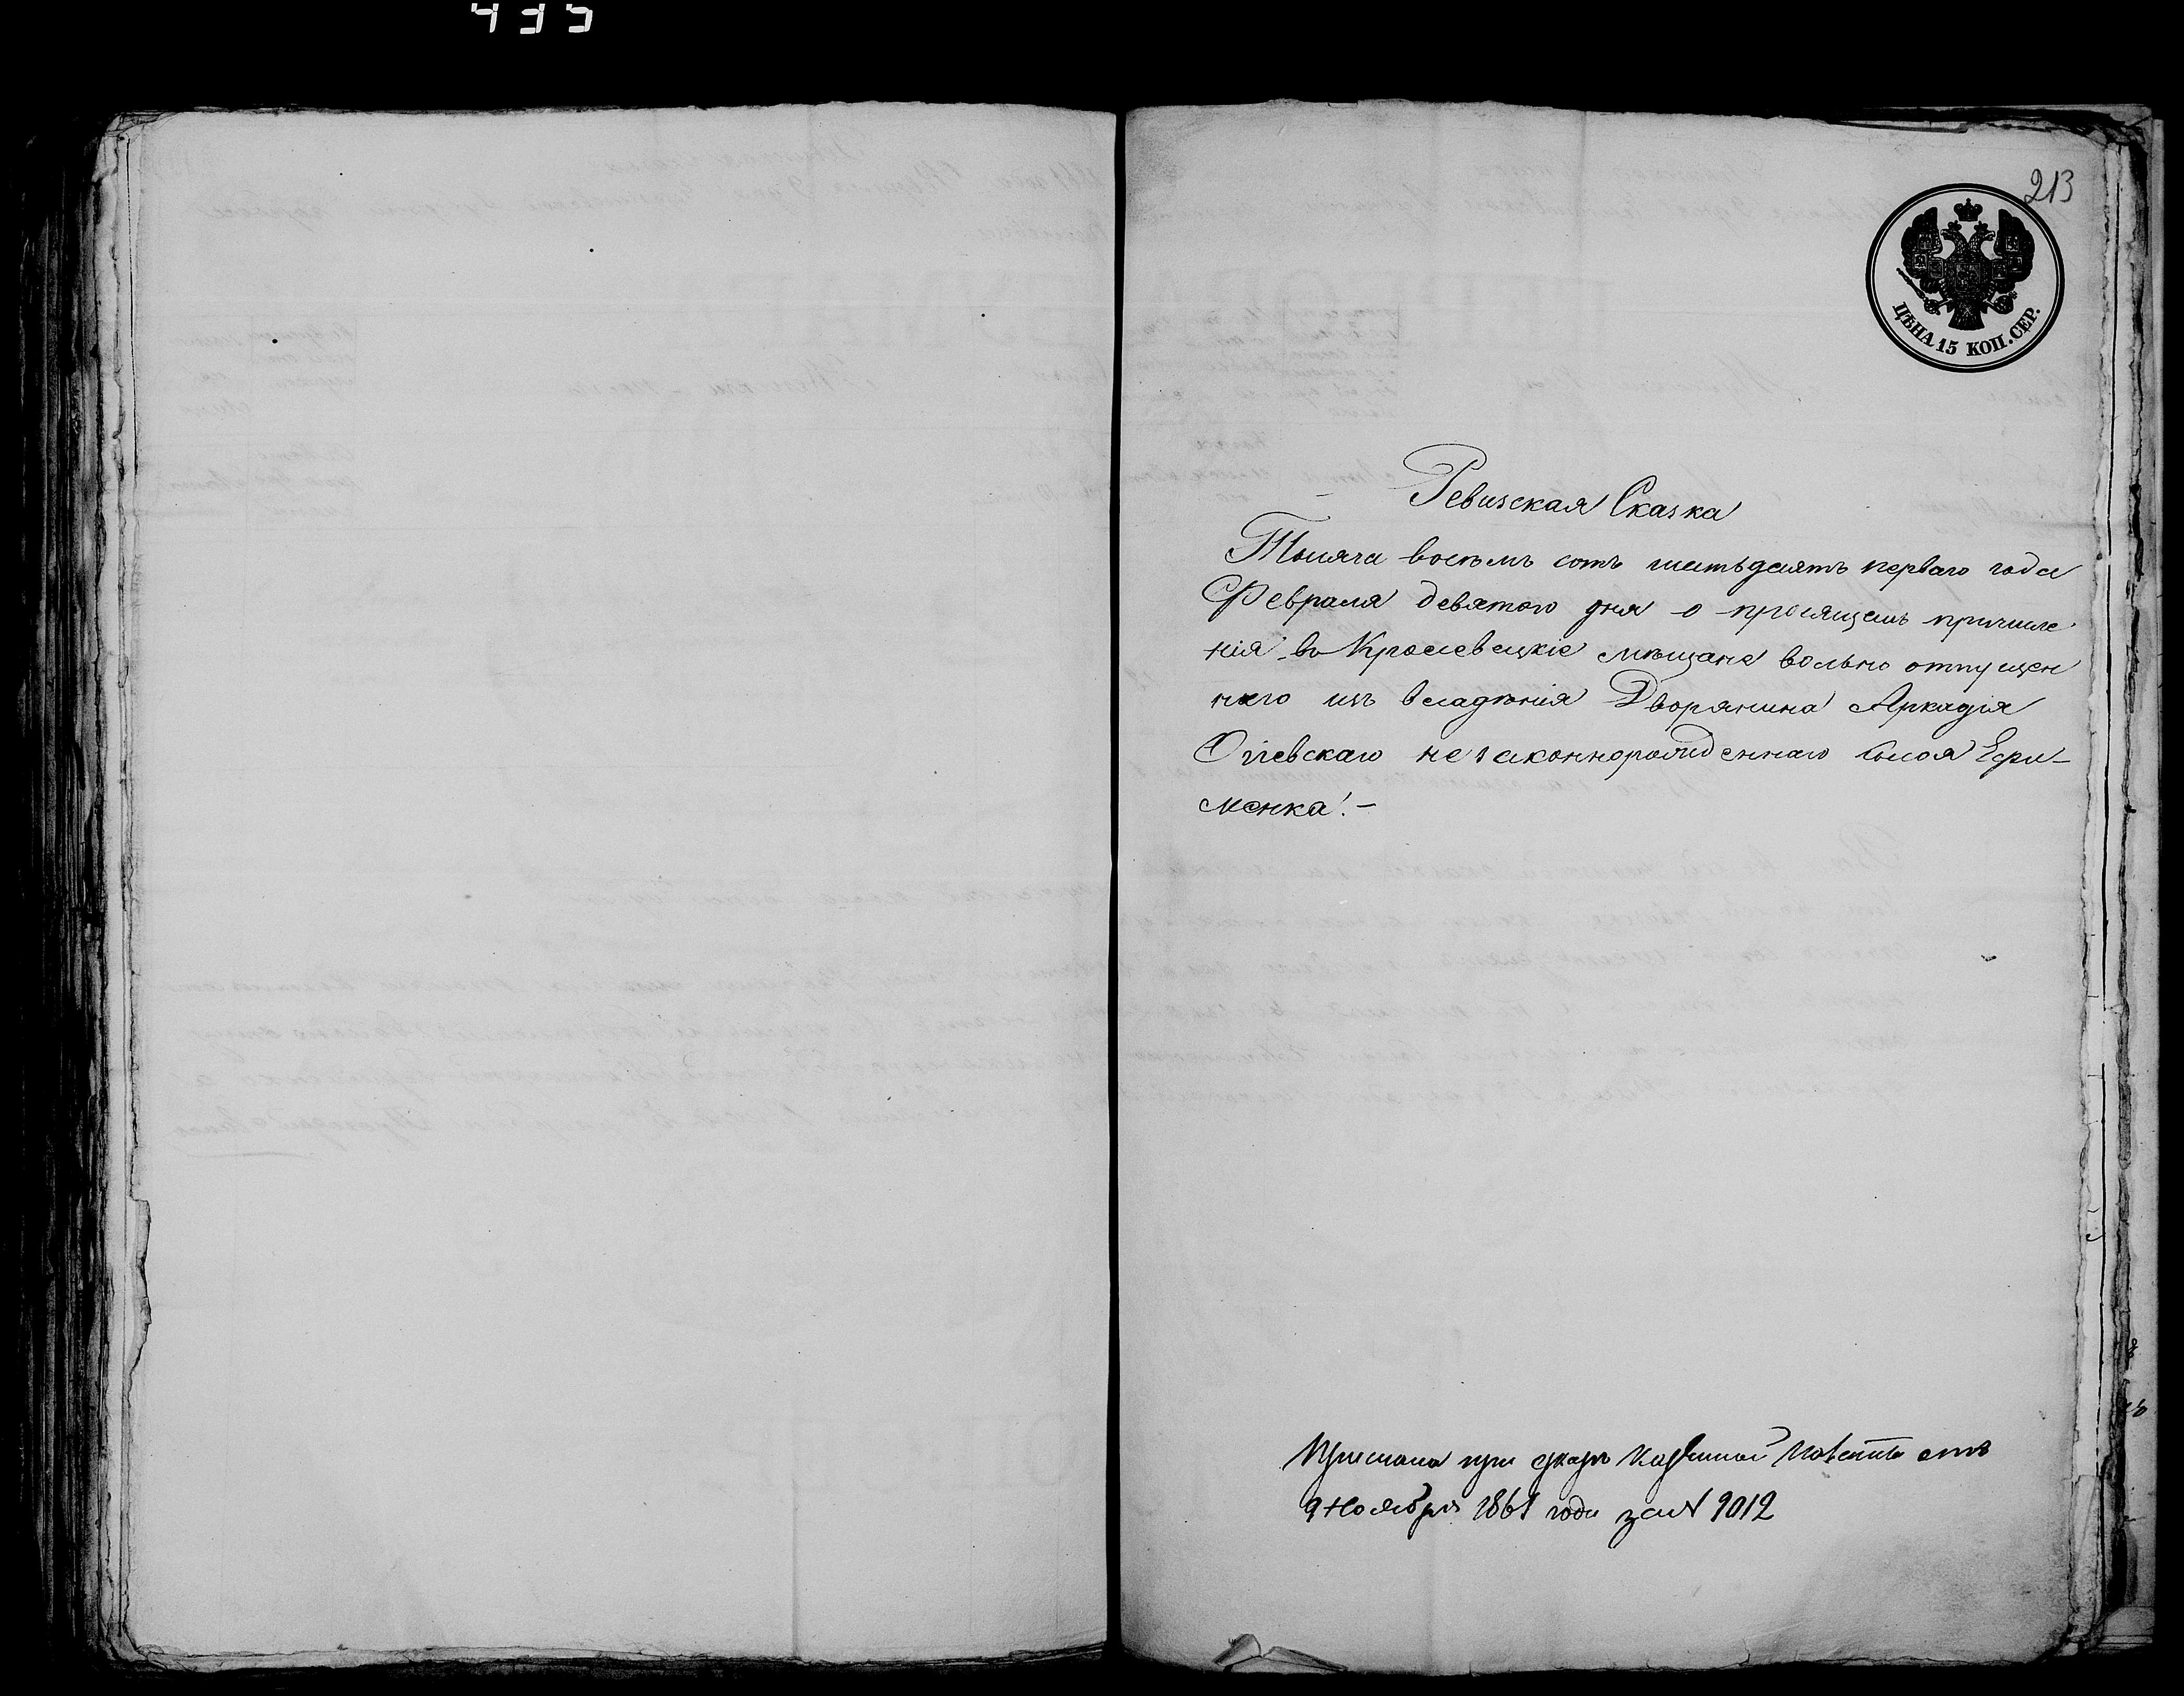 435
213
ЦѢНА 15 КОП. СЕР.
Ревизская Сказка
Тысяча восемь сотъ шестьдесятъ перваго года
Февраля девятого дня о просящемъ причисле
нія въ Кролевецкіе мѣщане вольно отпущен
наго изъ владѣнія Дворянина Аркадія
Огіевскаго незаконнорожденнаго Сысоя Ефи-
менка.-
Прислана при указѣ Казенной Палаты отъ
9 Ноября 1861 года за № 9012